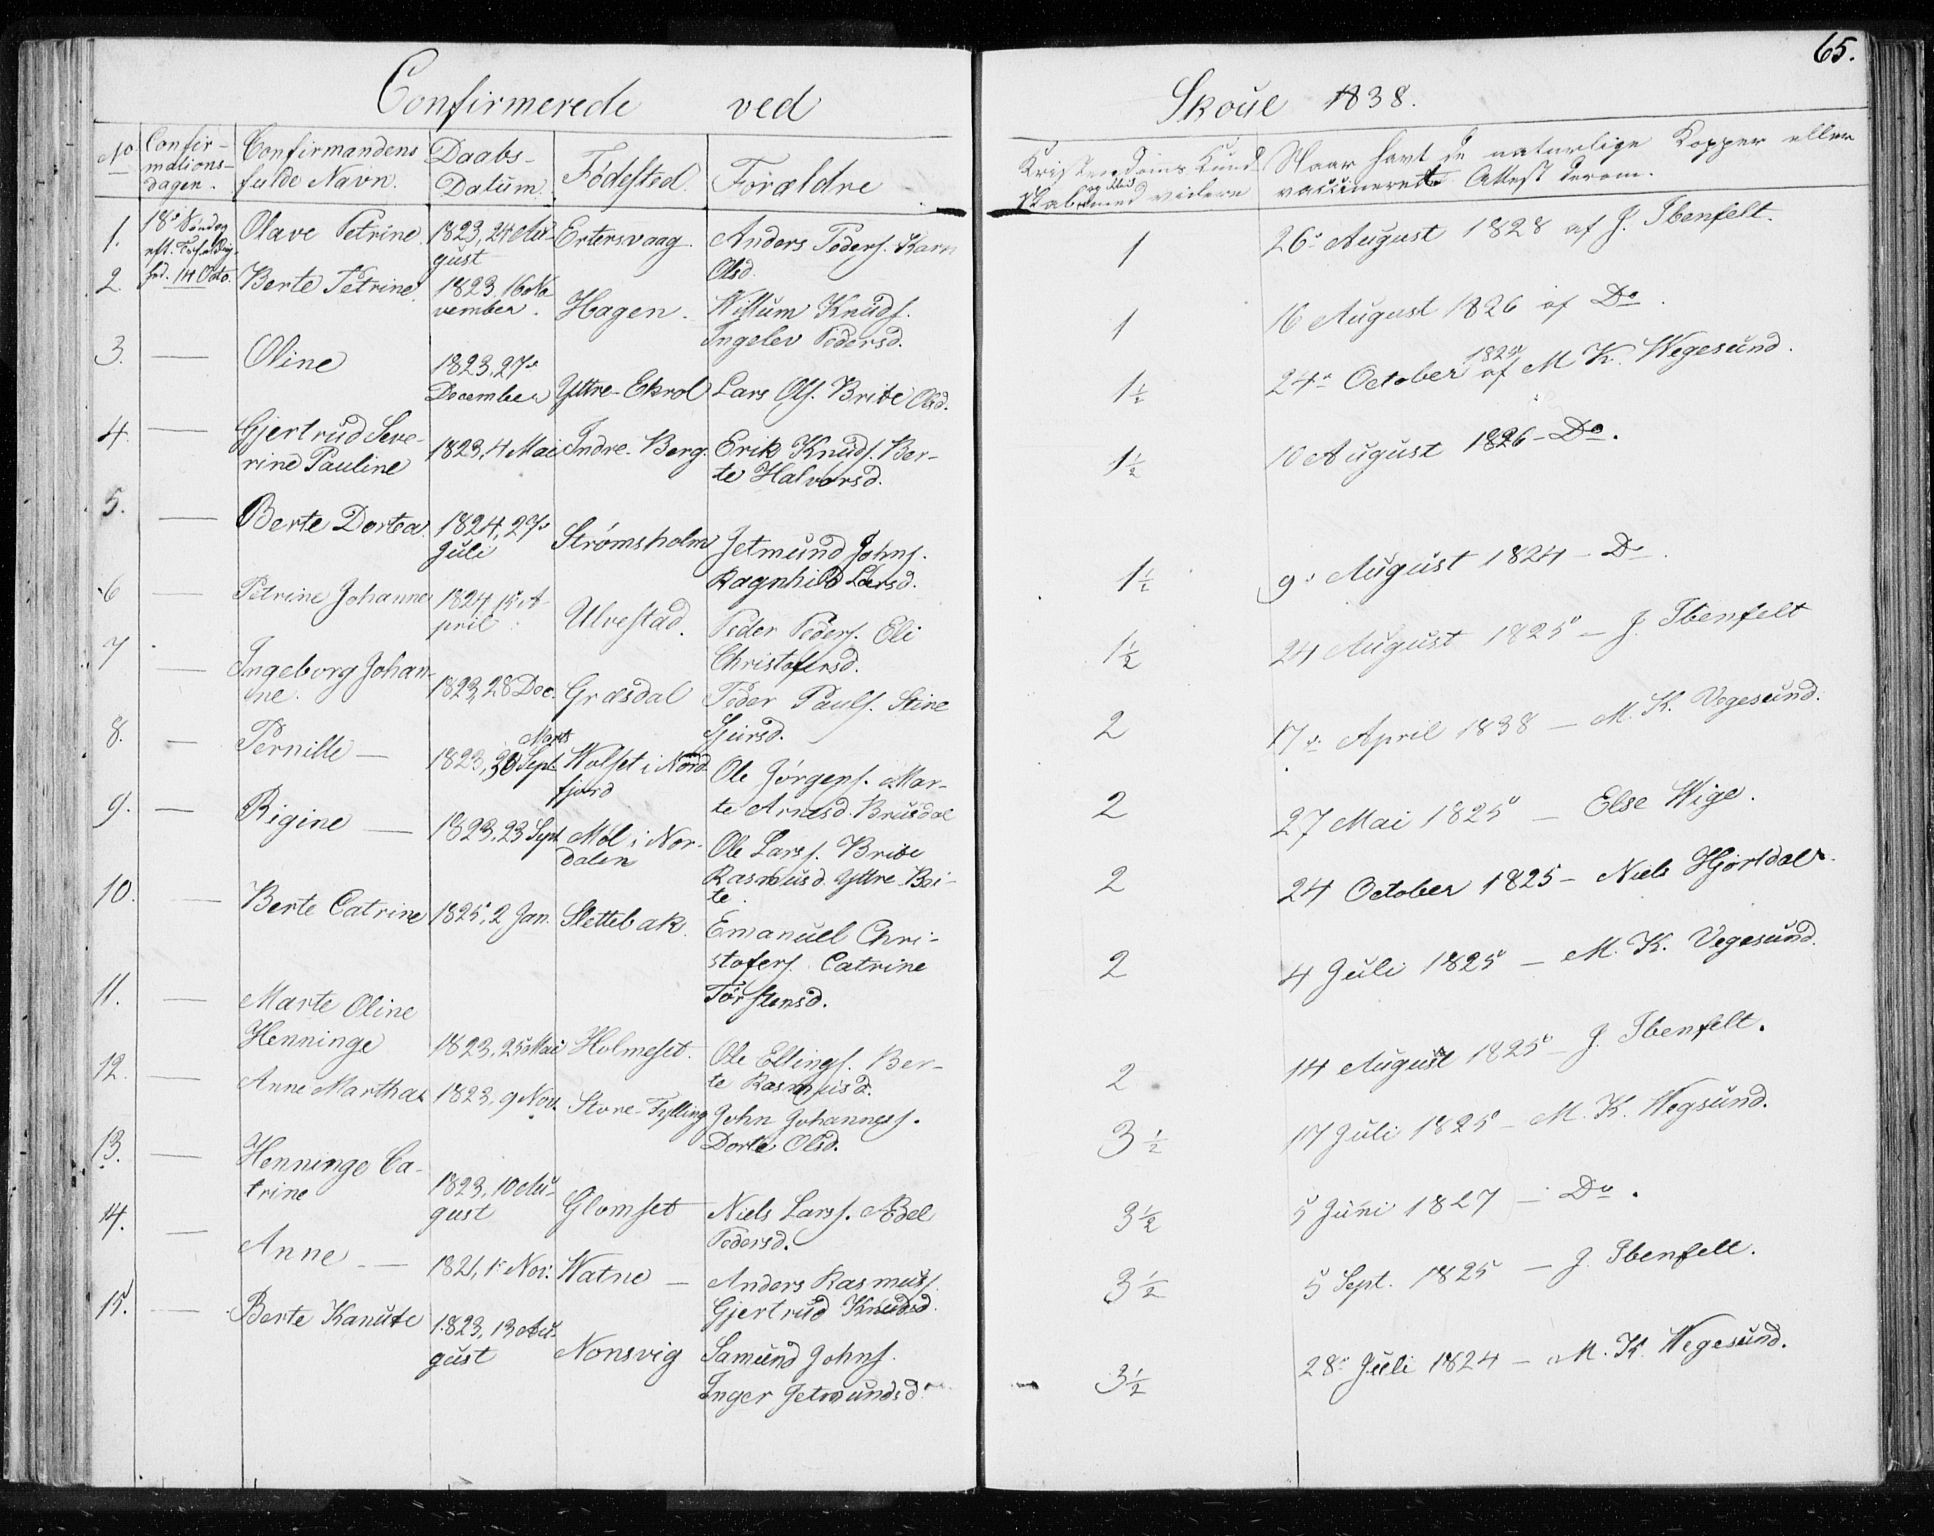 65.
Confirmerede ved Skoue 1838.
No. Confirmations-dagen. Confirmandens fulde Navn. Daabs-Datum. Fødested. Forældre Kristendoms Kundskab og Flid med videre Naar havt de naturlige Kopper eller vaccineret. Attest derom.
1. 18de Søndag eft. Trefoldighed. 14 Octo. Olave Petrine 1823, 24 August Ertersvaag. Anders Peders. Karn Olsd. 1 26de August 1828 af J. Ibenfelt.
2. Berte Petrine. 1823, 16 November. Hagen. Willum Knuds. Ingelev Pedersd. 1 16 August 1826 af Do.
3. — Oline 1823, 27de December Yttre-Ekrol Lars Ols. Brite Olsd. 1½ 24de October af M. K. Wegesund.
4. — Gjertrud Severine Pauline 1823, 4 Mai Indre-Berg. Erik Knuds. Berte Halvorsd. 1½ 10 August 1826 – Do.
5. — Berte Dortea 1824, 27de Juli Strømsholm Jetmund Johns. Ragnhild Larsd. 1½ 9de August 1824 – Do.
6 Petrine Johanne 1824, 15 April Ulvestad. Peder Peders. Eli Christofersd. 1½ 24 August 1825 – J. Ibenfelt
7 — Ingeborg Johanne. 1823, 28 Dec. Græsdal Peder Pauls. Stine Sjursd. 2 17de April 1838 – M. K. Vegesund.
8. — Pernille — 1823, 30 Sept. Marts Wolset i Nordfjord Ole Jørgens. Marte Arnesd. Brusdal 2 27 Mai 1825 – Else Wige.
9. — Rigine — 1823, 23 Sept Møl i Nordalen Ole Lars. Brite Rasmusd. Yttre-Beite. 2 24 October 1825 – Niels Hjortdal.
10. — Berte Catrine 1825, 2 Jan. Slettebak. Emanuel Christofers. Catrine Torstensd. 2 4 Juli 1825 – M. K. Vegesund.
11. — Marte Oline Henninge 1823, 25 Mai Holmeset. Ole Ellings. Berte Rasmusd. 2 14 August 1825 – J. Ibenfelt.
12. — Anne Martha 1823, 9 Nov. Store-Fylling John Johanness. Dorte Olsd. 3½ 17 Juli 1825 – M. K. Wegsund.
13. — Henninge Catrine 1823, 10 August Glomset Niels Lars. Abel Pedersd. 3½ 5 Juni 1827 – Do.
14. — Anne — 1821, 1de Nov. Watne — Anders Rasmuss. Gjertrud Knudsd. 3½ 5 Sept. 1825 – J. Ibenfelt.
15. — Berte Kanute 1823, 13 August Nonsvig Samund Johns. Inger Jetmundsd. 3½ 28de Juli 1824 – M. K. Wegesund.